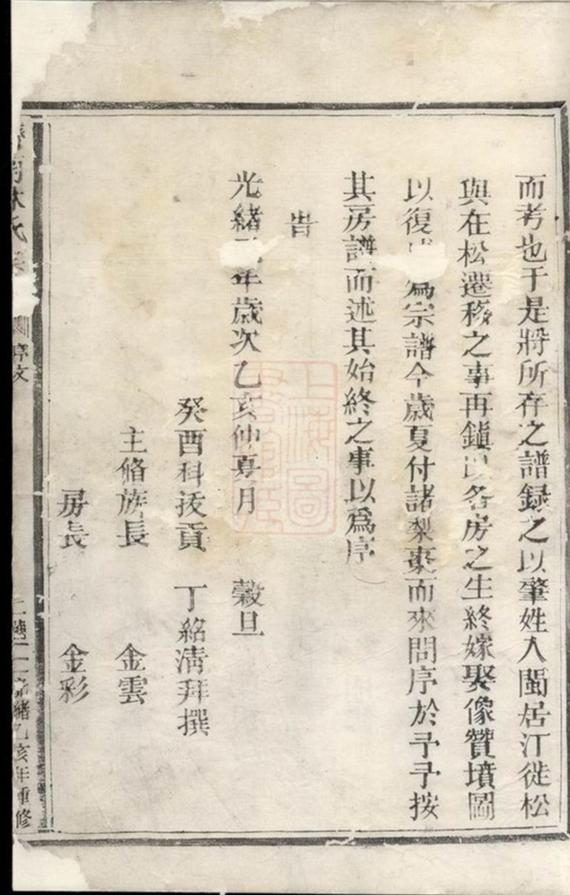 而考也于是將所存之譜録之以肇姓入閩居江徙松
與在松遷移之事再鎮以各房之生終嫁娶像贊墳圖
以復 爲宗譜今歲夏付諸梨棗而來問序於予予按
其房譜而述其始終之事以爲序
旹
光緒 年歲次乙亥仲夏月 穀旦
癸酉科拔貢 丁紹清拜撰
主脩族長 金雲
房長 金彩
林氏
序文
光緒乙亥年重修